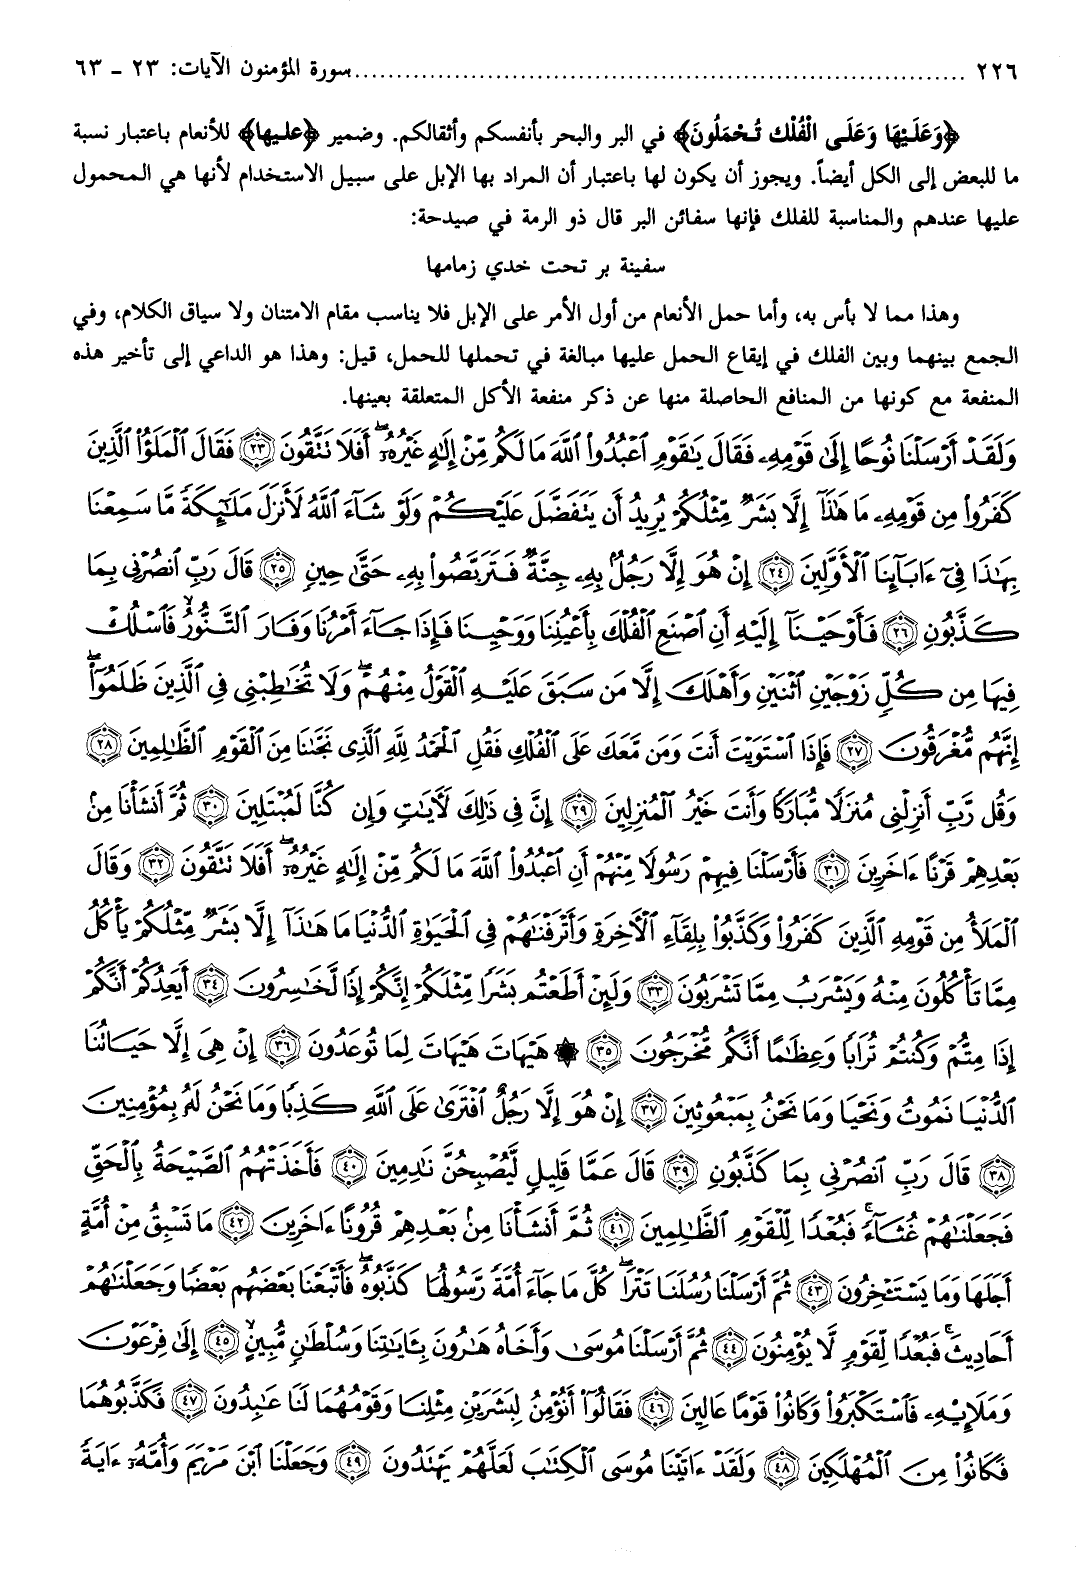 ٢٢٦ ........................................................................ سورة المؤمنون الآيات: ٢٣ - ٦٣
﴿وَعَلَيْهَا وَعَلَى الْفُلْكِ تُحْمَلُونَ﴾ في البر والبحر بأنفسكم وأثقالكم. وضمير ﴿عليها﴾ للأنعام باعتبار نسبة
ما للبعض إلى الكل أيضاً. ويجوز أن يكون لها باعتبار أن المراد بها الإبل على سبيل الاستخدام لأنها هي المحمول
عليها عندهم والمناسبة للفلك فإنها سفائن البر قال ذو الرمة في صيدحة:
سفينة بر تحت خدي زمامها
وهذا مما لا بأس به، وأما حمل الأنعام من أول الأمر على الإبل فلا يناسب مقام الامتنان ولا سياق الكلام، وفي
الجمع بينهما وبين الفلك في إيقاع الحمل عليها مبالغة في تحملها للحمل، قيل: وهذا هو الداعي إلى تأخير هذه
المنفعة مع كونها من المنافع الحاصلة منها عن ذكر منفعة الأكل المتعلقة بعينها.
وَلَقَدْ أَرْسَلْنَا نُوحًا إِلَىٰ قَوْمِهِۦ فَقَالَ يَٰقَوْمِ ٱعْبُدُوا۟ ٱللَّهَ مَا لَكُم مِّنْ إِلَٰهٍ غَيْرُهُۥٓ ۖ أَفَلَا تَتَّقُونَ ﴿٢٣﴾ فَقَالَ ٱلْمَلَؤُا۟ ٱلَّذِينَ
كَفَرُوا۟ مِن قَوْمِهِۦ مَا هَٰذَآ إِلَّا بَشَرٌ مِّثْلُكُمْ يُرِيدُ أَن يَتَفَضَّلَ عَلَيْكُمْ وَلَوْ شَآءَ ٱللَّهُ لَأَنزَلَ مَلَٰٓئِكَةً مَّا سَمِعْنَا
بِهَٰذَا فِىٓ ءَابَآئِنَا ٱلْأَوَّلِينَ ﴿٢٤﴾ إِنْ هُوَ إِلَّا رَجُلٌۢ بِهِۦ جِنَّةٌ فَتَرَبَّصُوا۟ بِهِۦ حَتَّىٰ حِينٍ ﴿٢٥﴾ قَالَ رَبِّ ٱنصُرْنِى بِمَا
كَذَّبُونِ ﴿٢٦﴾ فَأَوْحَيْنَآ إِلَيْهِ أَنِ ٱصْنَعِ ٱلْفُلْكَ بِأَعْيُنِنَا وَوَحْيِنَا فَإِذَا جَآءَ أَمْرُنَا وَفَارَ ٱلتَّنُّورُ ۙ فَٱسْلُكْ
فِيهَا مِن كُلٍّ زَوْجَيْنِ ٱثْنَيْنِ وَأَهْلَكَ إِلَّا مَن سَبَقَ عَلَيْهِ ٱلْقَوْلُ مِنْهُمْ ۖ وَلَا تُخَٰطِبْنِى فِى ٱلَّذِينَ ظَلَمُوٓا۟ ۖ
إِنَّهُم مُّغْرَقُونَ ﴿٢٧﴾ فَإِذَا ٱسْتَوَيْتَ أَنتَ وَمَن مَّعَكَ عَلَى ٱلْفُلْكِ فَقُلِ ٱلْحَمْدُ لِلَّهِ ٱلَّذِى نَجَّىٰنَا مِنَ ٱلْقَوْمِ ٱلظَّٰلِمِينَ ﴿٢٨﴾
وَقُل رَّبِّ أَنزِلْنِى مُنزَلًا مُّبَارَكًا وَأَنتَ خَيْرُ ٱلْمُنزِلِينَ ﴿٢٩﴾ إِنَّ فِى ذَٰلِكَ لَءَايَٰتٍ وَإِن كُنَّا لَمُبْتَلِينَ ﴿٣٠﴾ ثُمَّ أَنشَأْنَا مِنۢ
بَعْدِهِمْ قَرْنًا ءَاخَرِينَ ﴿٣١﴾ فَأَرْسَلْنَا فِيهِمْ رَسُولًا مِّنْهُمْ أَنِ ٱعْبُدُوا۟ ٱللَّهَ مَا لَكُم مِّنْ إِلَٰهٍ غَيْرُهُۥٓ ۖ أَفَلَا تَتَّقُونَ ﴿٣٢﴾ وَقَالَ
ٱلْمَلَأُ مِن قَوْمِهِ ٱلَّذِينَ كَفَرُوا۟ وَكَذَّبُوا۟ بِلِقَآءِ ٱلْءَاخِرَةِ وَأَتْرَفْنَٰهُمْ فِى ٱلْحَيَوٰةِ ٱلدُّنْيَا مَا هَٰذَآ إِلَّا بَشَرٌ مِّثْلُكُمْ يَأْكُلُ
مِمَّا تَأْكُلُونَ مِنْهُ وَيَشْرَبُ مِمَّا تَشْرَبُونَ ﴿٣٣﴾ وَلَئِنْ أَطَعْتُم بَشَرًا مِّثْلَكُمْ إِنَّكُمْ إِذًا لَّخَٰسِرُونَ ﴿٣٤﴾ أَيَعِدُكُمْ أَنَّكُمْ
إِذَا مِتُّمْ وَكُنتُمْ تُرَابًا وَعِظَٰمًا أَنَّكُم مُّخْرَجُونَ ﴿٣٥﴾ ۞ هَيْهَاتَ هَيْهَاتَ لِمَا تُوعَدُونَ ﴿٣٦﴾ إِنْ هِىَ إِلَّا حَيَاتُنَا
ٱلدُّنْيَا نَمُوتُ وَنَحْيَا وَمَا نَحْنُ بِمَبْعُوثِينَ ﴿٣٧﴾ إِنْ هُوَ إِلَّا رَجُلٌ ٱفْتَرَىٰ عَلَى ٱللَّهِ كَذِبًا وَمَا نَحْنُ لَهُۥ بِمُؤْمِنِينَ
﴿٣٨﴾ قَالَ رَبِّ ٱنصُرْنِى بِمَا كَذَّبُونِ ﴿٣٩﴾ قَالَ عَمَّا قَلِيلٍ لَّيُصْبِحُنَّ نَٰدِمِينَ ﴿٤٠﴾ فَأَخَذَتْهُمُ ٱلصَّيْحَةُ بِٱلْحَقِّ
فَجَعَلْنَٰهُمْ غُثَآءً ۚ فَبُعْدًا لِّلْقَوْمِ ٱلظَّٰلِمِينَ ﴿٤١﴾ ثُمَّ أَنشَأْنَا مِنۢ بَعْدِهِمْ قُرُونًا ءَاخَرِينَ ﴿٤٢﴾ مَا تَسْبِقُ مِنْ أُمَّةٍ
أَجَلَهَا وَمَا يَسْتَـْٔخِرُونَ ﴿٤٣﴾ ثُمَّ أَرْسَلْنَا رُسُلَنَا تَتْرَا ۖ كُلَّ مَا جَآءَ أُمَّةً رَّسُولُهَا كَذَّبُوهُ ۖ فَأَتْبَعْنَا بَعْضَهُم بَعْضًا وَجَعَلْنَٰهُمْ
أَحَادِيثَ ۚ فَبُعْدًا لِّقَوْمٍ لَّا يُؤْمِنُونَ ﴿٤٤﴾ ثُمَّ أَرْسَلْنَا مُوسَىٰ وَأَخَاهُ هَٰرُونَ بِـَٔايَٰتِنَا وَسُلْطَٰنٍ مُّبِينٍ ۙ ﴿٤٥﴾ إِلَىٰ فِرْعَوْنَ
وَمَلَإِي۟هِۦ فَٱسْتَكْبَرُوا۟ وَكَانُوا۟ قَوْمًا عَالِينَ ﴿٤٦﴾ فَقَالُوٓا۟ أَنُؤْمِنُ لِبَشَرَيْنِ مِثْلِنَا وَقَوْمُهُمَا لَنَا عَٰبِدُونَ ﴿٤٧﴾ فَكَذَّبُوهُمَا
فَكَانُوا۟ مِنَ ٱلْمُهْلَكِينَ ﴿٤٨﴾ وَلَقَدْ ءَاتَيْنَا مُوسَى ٱلْكِتَٰبَ لَعَلَّهُمْ يَهْتَدُونَ ﴿٤٩﴾ وَجَعَلْنَا ٱبْنَ مَرْيَمَ وَأُمَّهُۥٓ ءَايَةً